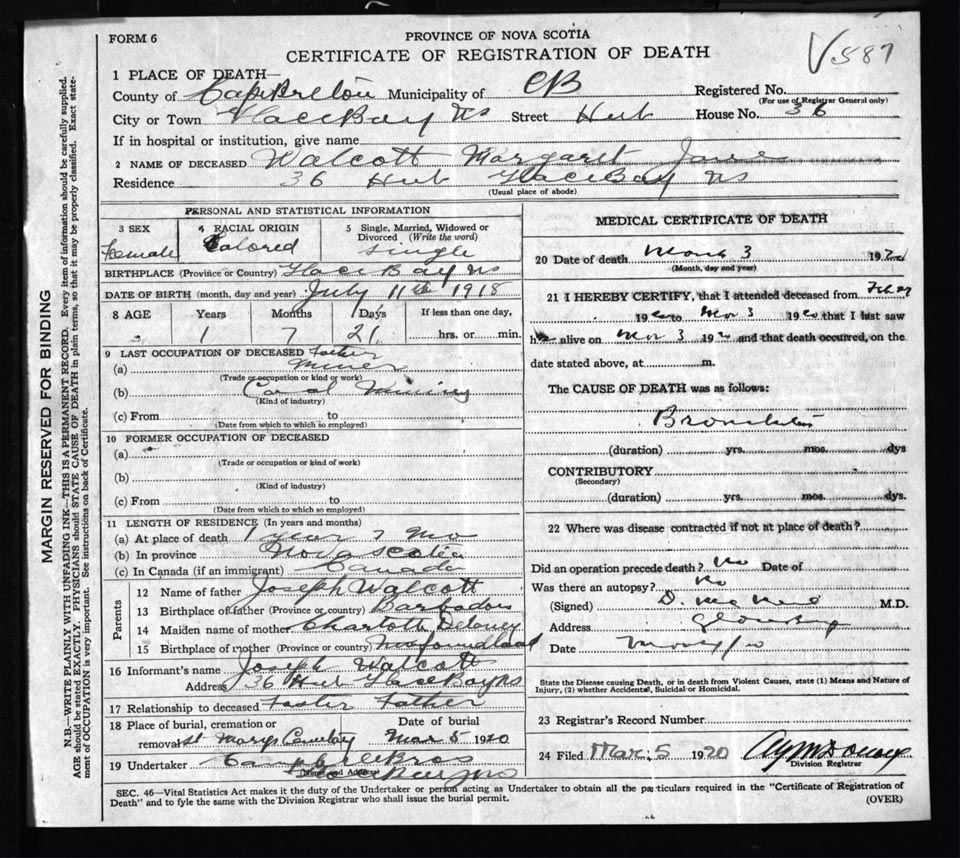 FORM 6
PROVINCE OF NOVA SCOTIA
CERTIFICATE OF REGISTRATION OF DEATH
587
1 PLACE OF DEATH—
County of Cape Breton Municipality of CB Registered No.
(For use of Registrar General only)
City or Town Glace Bay NS Street Hub House No. 36
If in hospital or institution, give name
2 NAME OF DECEASED Walcott Margaret Jane
Residence 36 Hub Glace Bay NS
(Usual place of abode)
PERSONAL AND STATISTICAL INFORMATION
3 SEX Female
4 RACIAL ORIGIN Colored
5 Single, Married, Widowed or Divorced (Write the word) Single
BIRTHPLACE (Province or Country) Glace Bay NS
DATE OF BIRTH (month, day and year) July 11th 1918
8 AGE Years Months Days If less than one day,
1 7 21 hrs. or min.
9 LAST OCCUPATION OF DECEASED Father
(a) Miner
(Trade or occupation or kind of work)
(b) Coal Mining
(Kind of industry)
(c) From to
(Date from which to which so employed)
10 FORMER OCCUPATION OF DECEASED
(a)
(Trade or occupation or kind of work)
(b)
(Kind of industry)
(c) From to
(Date from which to which so employed)
11 LENGTH OF RESIDENCE (In years and months)
(a) At place of death 1 year 7 Mo
(b) In province Nova Scotia
(c) In Canada (if an immigrant) Canada
Parents
12 Name of father Joseph Walcott
13 Birthplace of father (Province or country) Barbados
14 Maiden name of mother Charlotte Deloney
15 Birthplace of mother (Province or country) Newfoundland
16 Informant's name Joseph Walcott
Address 36 Hub Glace Bay NS
17 Relationship to deceased Foster Father
18 Place of burial, cremation or removal St Marys Cemetery
Date of burial Mar 5 1920
19 Undertaker Bros
(Name and Address)
MEDICAL CERTIFICATE OF DEATH
20 Date of death March 3 1920
(Month, day and year)
21 I HEREBY CERTIFY, that I attended deceased from Feb
1920 to Mar 3 1920 that I last saw
h alive on Mar 3 1920 and that death occurred, on the
date stated above, at m.
The CAUSE OF DEATH was as follows:
Bronchitis
(duration) yrs. mos. dys
CONTRIBUTORY
(Secondary)
(duration) yrs. mos. dys.
22 Where was disease contracted if not at place of death?
Did an operation precede death? No Date of
Was there an autopsy? No
(Signed) D. M.D.
Address Glace Bay
Date
State the Disease causing Death, or in death from Violent Causes, state (1) Means and Nature of
Injury, (2) whether Accidental, Suicidal or Homicidal.
23 Registrar's Record Number
24 Filed Mar. 5 1920
Division Registrar
SEC. 46—Vital Statistics Act makes it the duty of the Undertaker or person acting as Undertaker to obtain all the particulars required in the "Certificate of Registration of
Death" and to fyle the same with the Division Registrar who shall issue the burial permit.
(OVER)
MARGIN RESERVED FOR BINDING
N.B.—WRITE PLAINLY WITH UNFADING INK—THIS IS A PERMANENT RECORD. Every item of information should be carefully supplied.
AGE should be stated EXACTLY. PHYSICIANS should STATE CAUSE OF DEATH in plain terms, so that it may be properly classified. Exact state-
ment of OCCUPATION is very important. See instructions on back of Certificate.